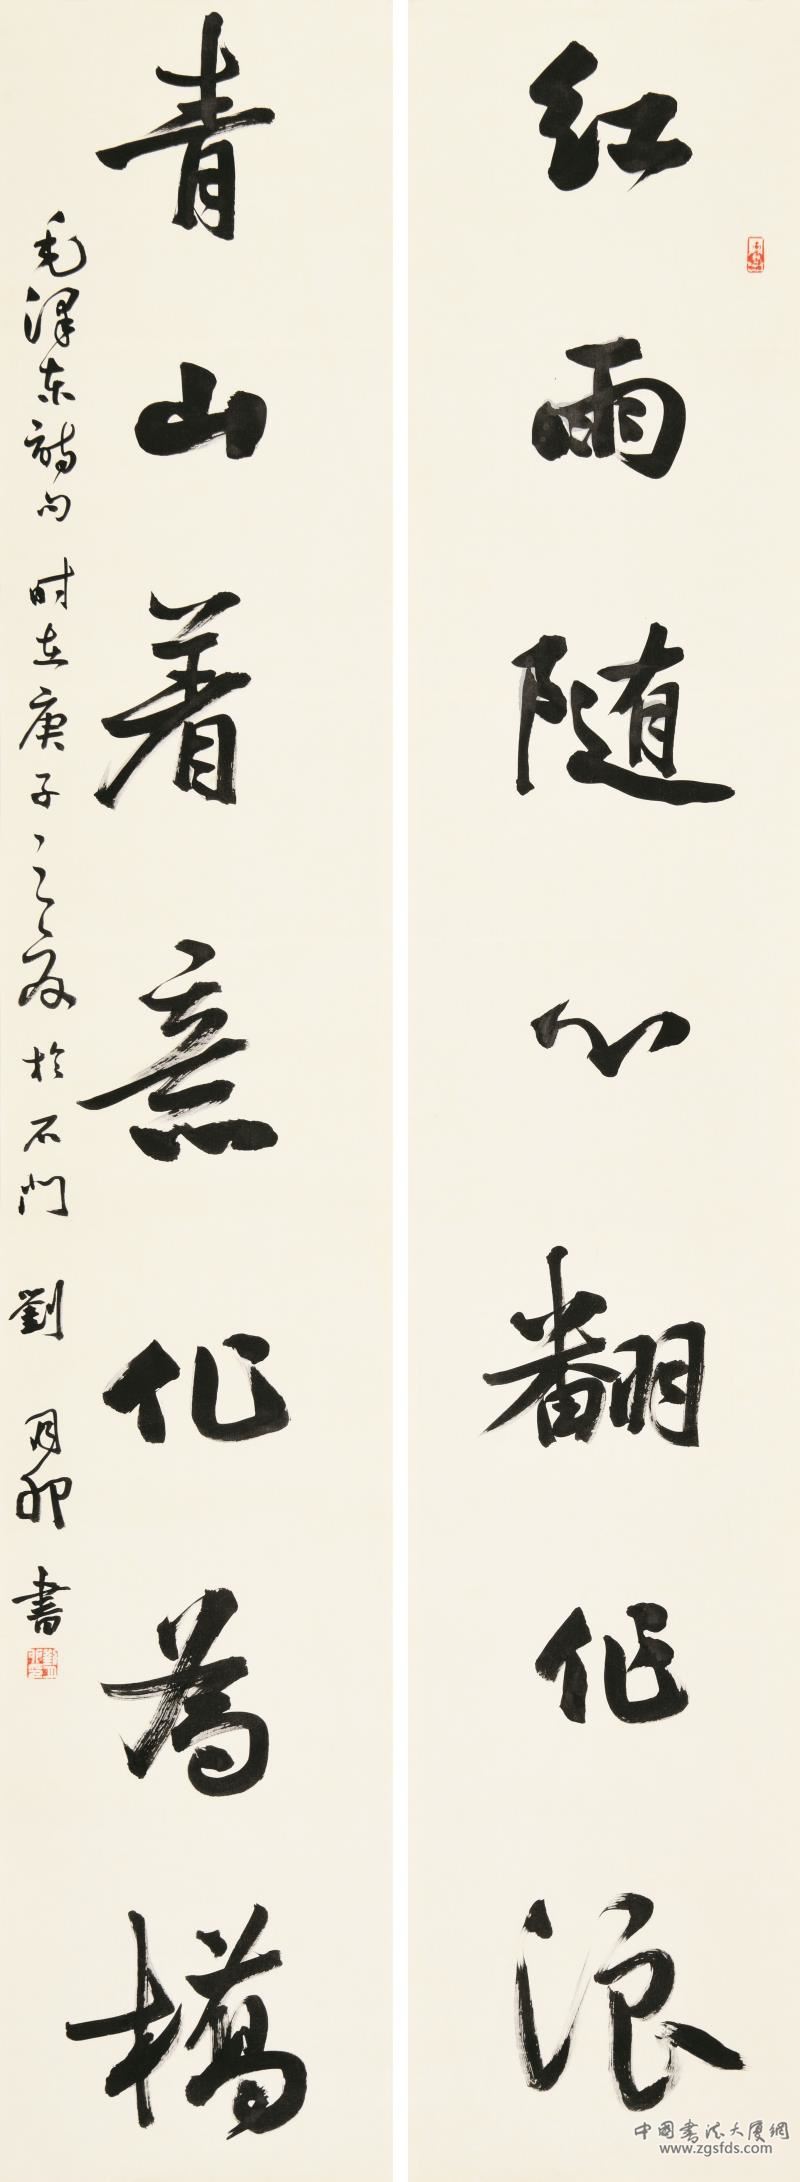 红雨随心翻作浪
青山着意化為橋
毛泽东詩句 时在庚子之夏於石门 劉月卯書
中國書法大厦網
www.zgsfds.com